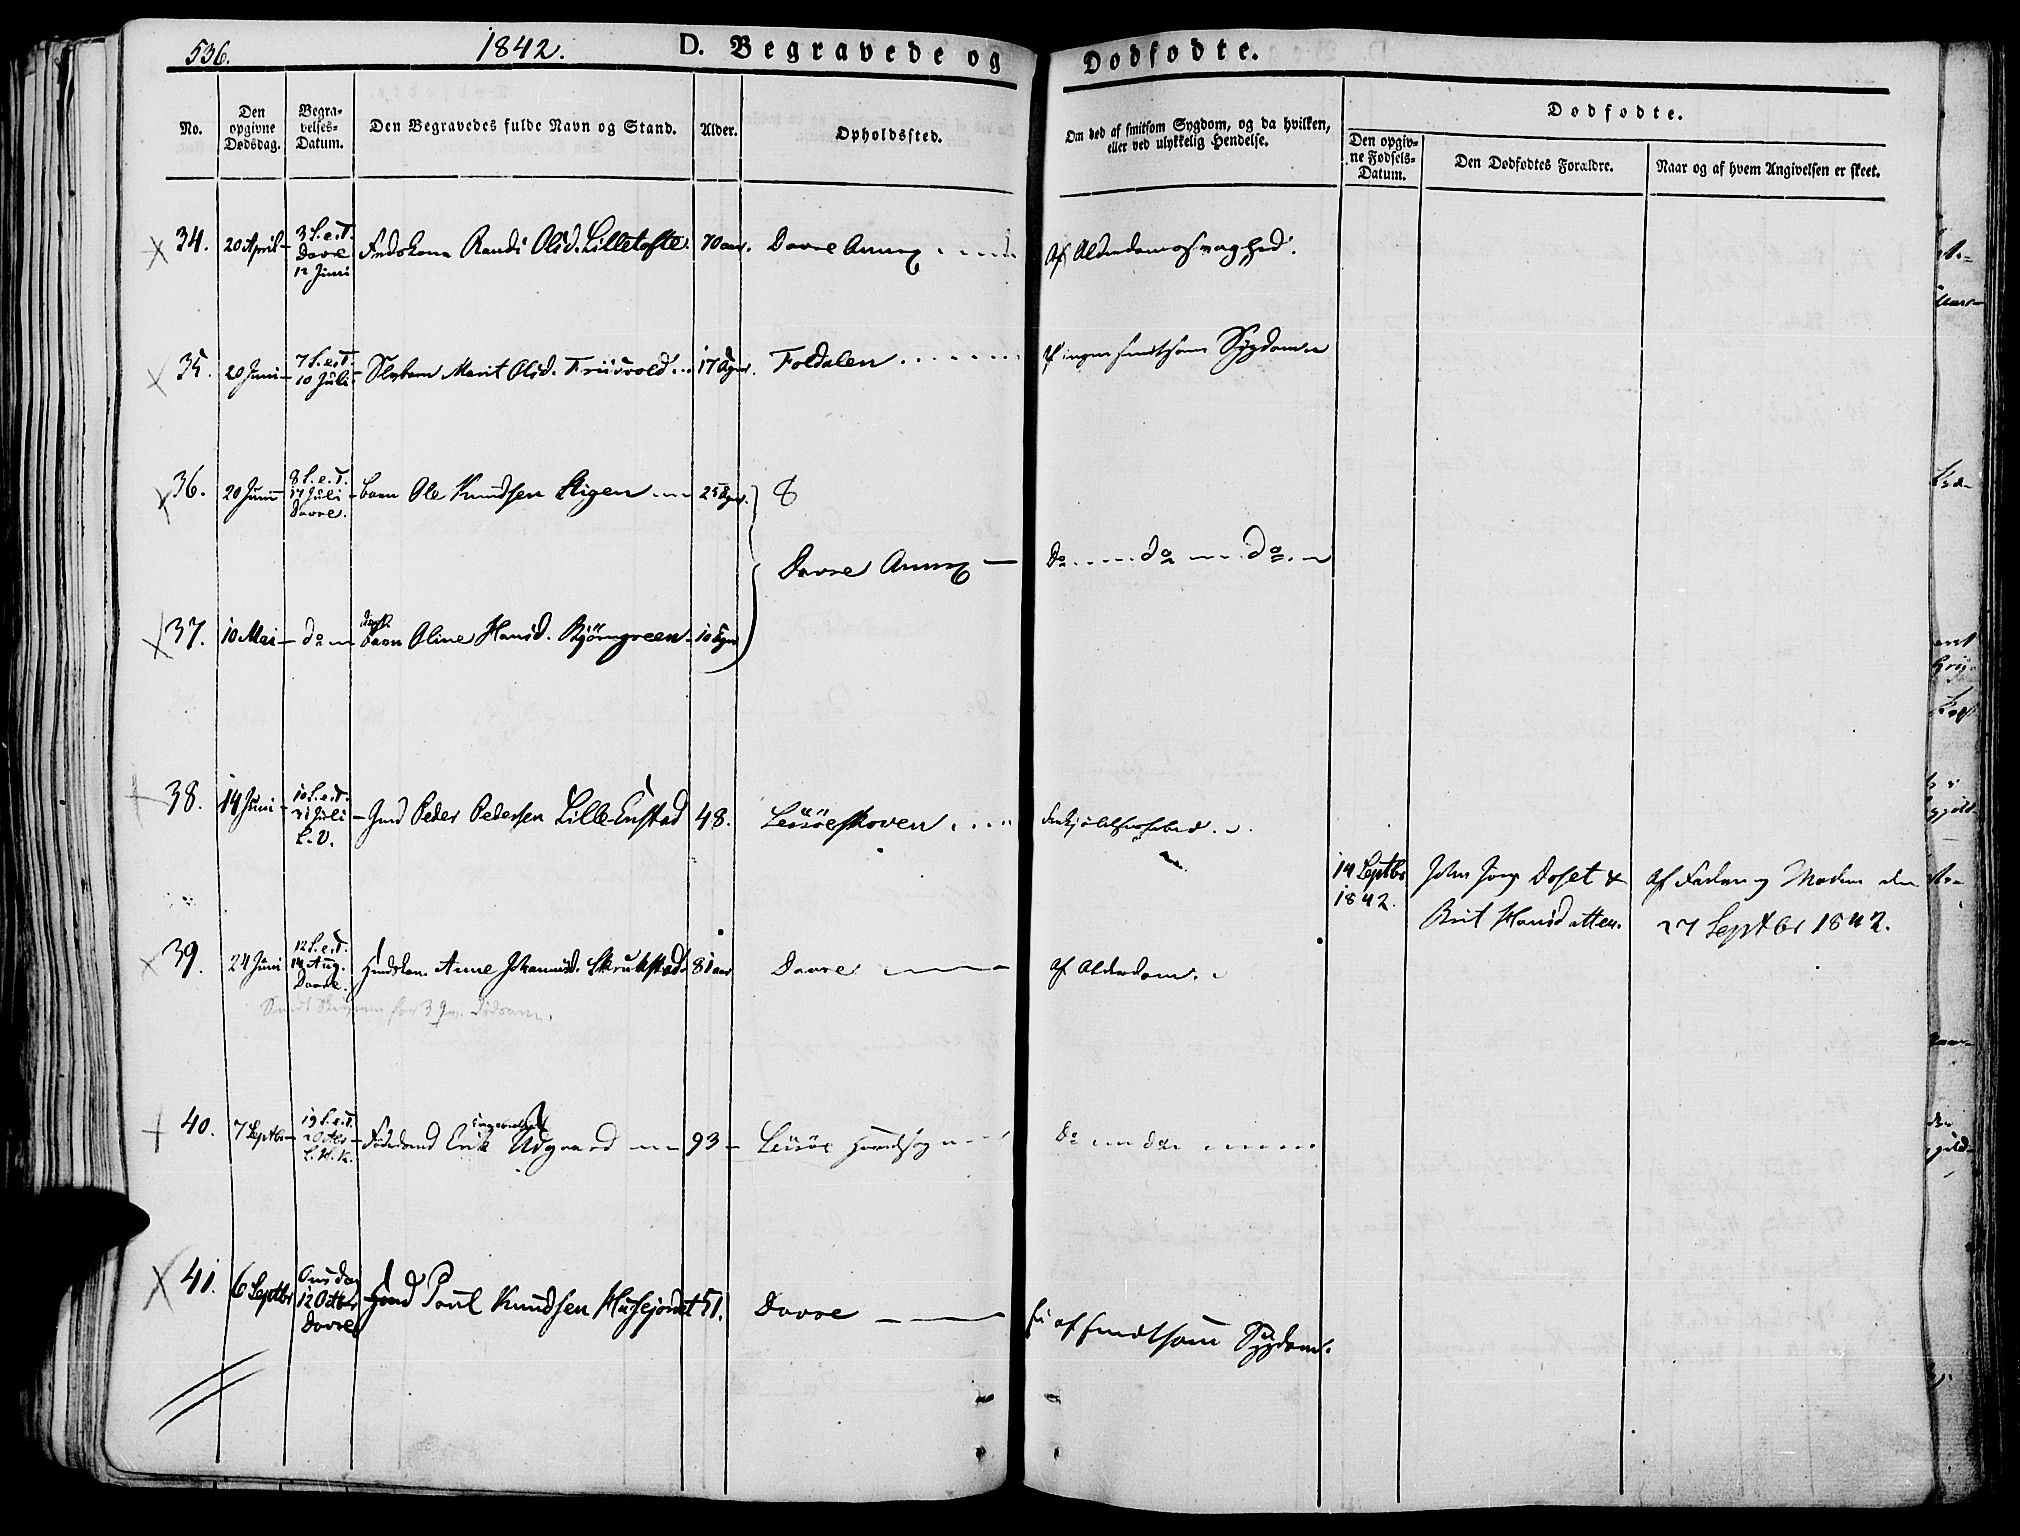 536.
1842.
D. Begravede og Dødfødte.
No.
Den opgivne Dødsdag.
Begra-
velses-
Datum.
Den Begravedes fulde Navn og Stand.
Alder.
Opholdssted.
Om død af smitsom Sygdom, og da hvilken,
eller ved ulykkelig Hendelse.
Dødfødte.
Den opgiv-
ne Fødsels-
Datum.
Den Dødfødtes Forældre.
Naar og af hvem Angivelsen er skeet.
34. 20 April 3 S. e. T. Dovre 12 Juni Randi Olsd. Lilletofte 70 aar. Dovre Annex Af Alderdomssvaghed.
35. 20 Juni 7 S. e. T. 10 Juli Marit Olsd. Friisvold 17 Foldalen Af ingen smitsom Sygdom
36. 20 Juni 8 S. e. T. 17 Juli Dovre. barn Ole Knudsen Stigen 25
Dovre Annex Do do do.
37. 10 Mai do barn Oline Hansd. Bjørngreen 10
38. 14 Juni 10 S. e. T. 31 Juli L. V. Peder Pedersen Lille-Enstad 48. Lessøeskoven
14 Septbr 1842. John Doset & Brit Hansdatter.
Af Faderen og Moderen den 27 Septbr 1842.
39. 24 Juni 12 S. e. T. 14 Aug. Dovre. Anne Johannisd. 81 aar Dovre af Alderdom.
40. 7 Septbr 19 S. e. T. 2 Octbr L. H. K. Erik Udgaard 93 Lessøe Hovedsogn Do do
41. 6 Septbr Onsdag 12 Octbr Dovre Poul Knudsen Husejordet 51. Dovre ei af smitsom Sygdom.